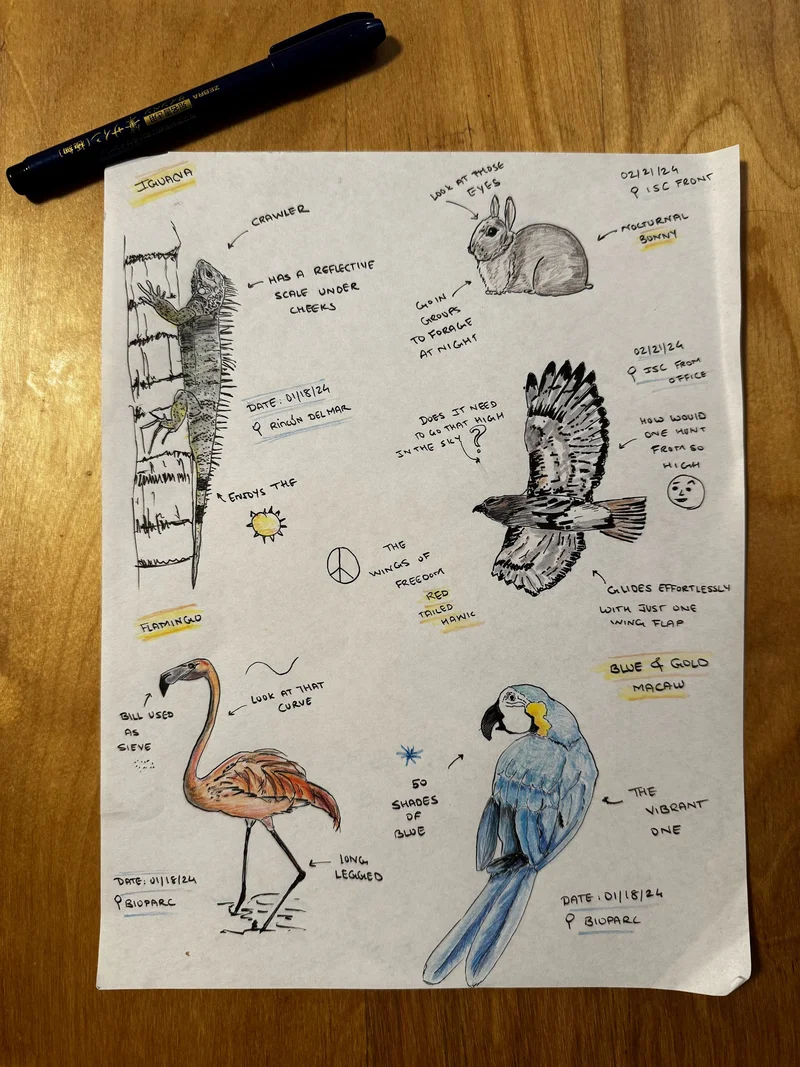 ZEBRA
筆サイン
IGUANA
CRAWLER
HAS A REFLECTIVE
SCALE UNDER
CHEEKS
DATE: 01/18/24
RINCÓN DEL MAR
ENJOYS THE
LOOK AT THOSE
EYES
02/21/24
ISC FRONT
NOCTURNAL
BUNNY
GO IN
GROUPS
TO FORAGE
AT NIGHT
02/21/24
ISC FROM
OFFICE
DOES IT NEED
TO GO THAT HIGH
IN THE SKY ?
HOW WOULD
ONE HUNT
FROM SO
HIGH
THE
WINGS OF
FREEDOM
RED
TAILED
HAWK
GLIDES EFFORTLESSLY
WITH JUST ONE
WING FLAP
FLAMINGO
LOOK AT THAT
CURVE
BILL USED
AS
SIEVE
LONG
LEGGED
DATE: 01/18/24
BIOPARC
BLUE & GOLD
MACAW
50
SHADES
OF
BLUE
THE
VIBRANT
ONE
DATE: 01/18/24
BIOPARC